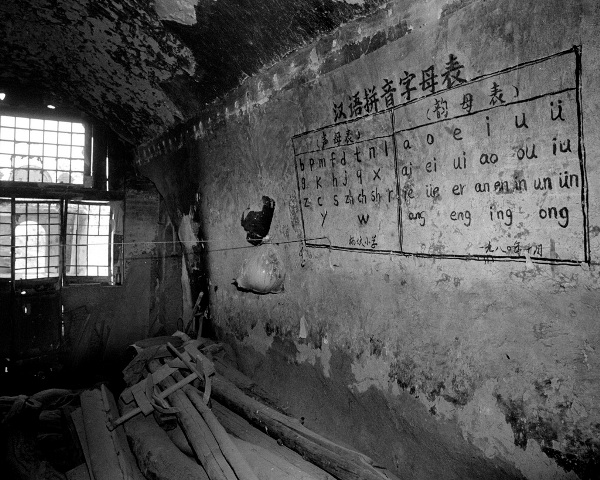 汉语拼音字母表
(声母表)
b p m f d t n l
g k h j q x
z c s zh ch sh r
y w
(韵母表)
a o e i u ü
ai ei ui ao ou iu
ie üe er an en in un ün
ang eng ing ong
一九八〇年十月